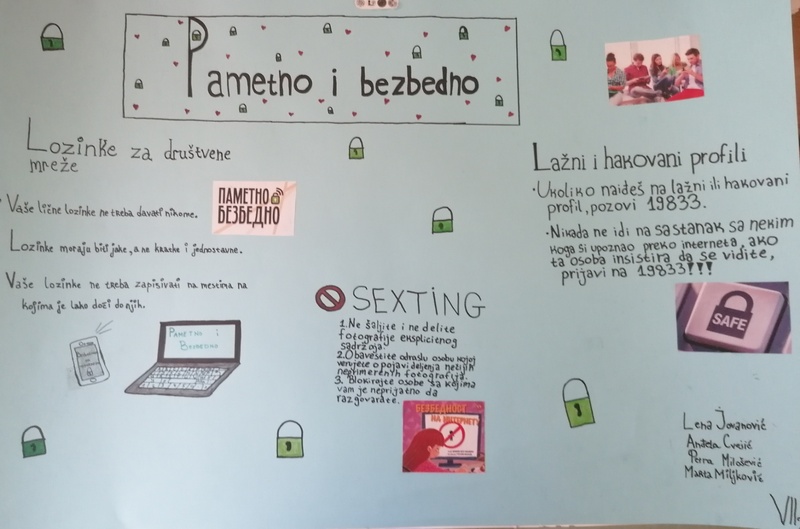 Pametno i bezbedno
Lozinke za društvene
mreže
Vaše lične lozinke ne treba davati nikome.
Lozinke moraju biti jake, a ne kratke i jednostavne.
Vaše lozinke ne treba zapisivati na mestima na
kojima je lako doći do njih.
ПАМЕТНО
БЕЗБЕДНО
PAMETNO i
BEZBEDNO
SEXTING
1. Ne šaljite i ne delite
fotografije eksplicitnog
sadržaja.
2. Obavestite odraslu osobu kojoj
verujete o pojavi deljenja nečijih
neprimerenih fotografija.
3. Blokirajte osobe sa kojima
vam je neprijatno da
razgovarate.
БЕЗБЕДНОСТ
НА ИНТЕРНЕТУ
Lažni i hakovani profili
• Ukoliko naiđeš na lažni ili hakovani
profil, pozovi 19833.
• Nikada ne idi na sastanak sa nekim
koga si upoznao preko interneta, ako
ta osoba insistira da se vidite,
prijavi na 19833!!!
SAFE
Lena Jovanović
Anđela Cvejić
Petra Milošević
Marta Miljković